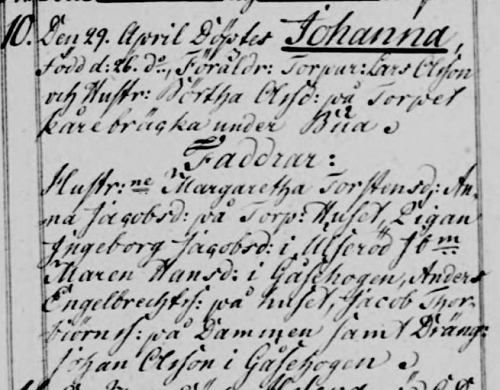 10. Den 29. April Döptes Johanna,
född d: 26. do., Föräldr: Torpar: Lars Olsson
och Hustr: Börtha Olsd: på Torpet
kårebräcka under Bua.
Faddrar:
Hustr:ne Margaretha Torstensd: An-
na Jacobsd: på Torp: Huset, Pigan
Ingeborg Jacobsd: i Ulseröd
Maren Hansd: i Gåsehogen, Anders
Engelbrechts: på huset, Jacob Thor-
biörns: på Dammen samt Dräng:
Johan Olsson i Gåsehogen.